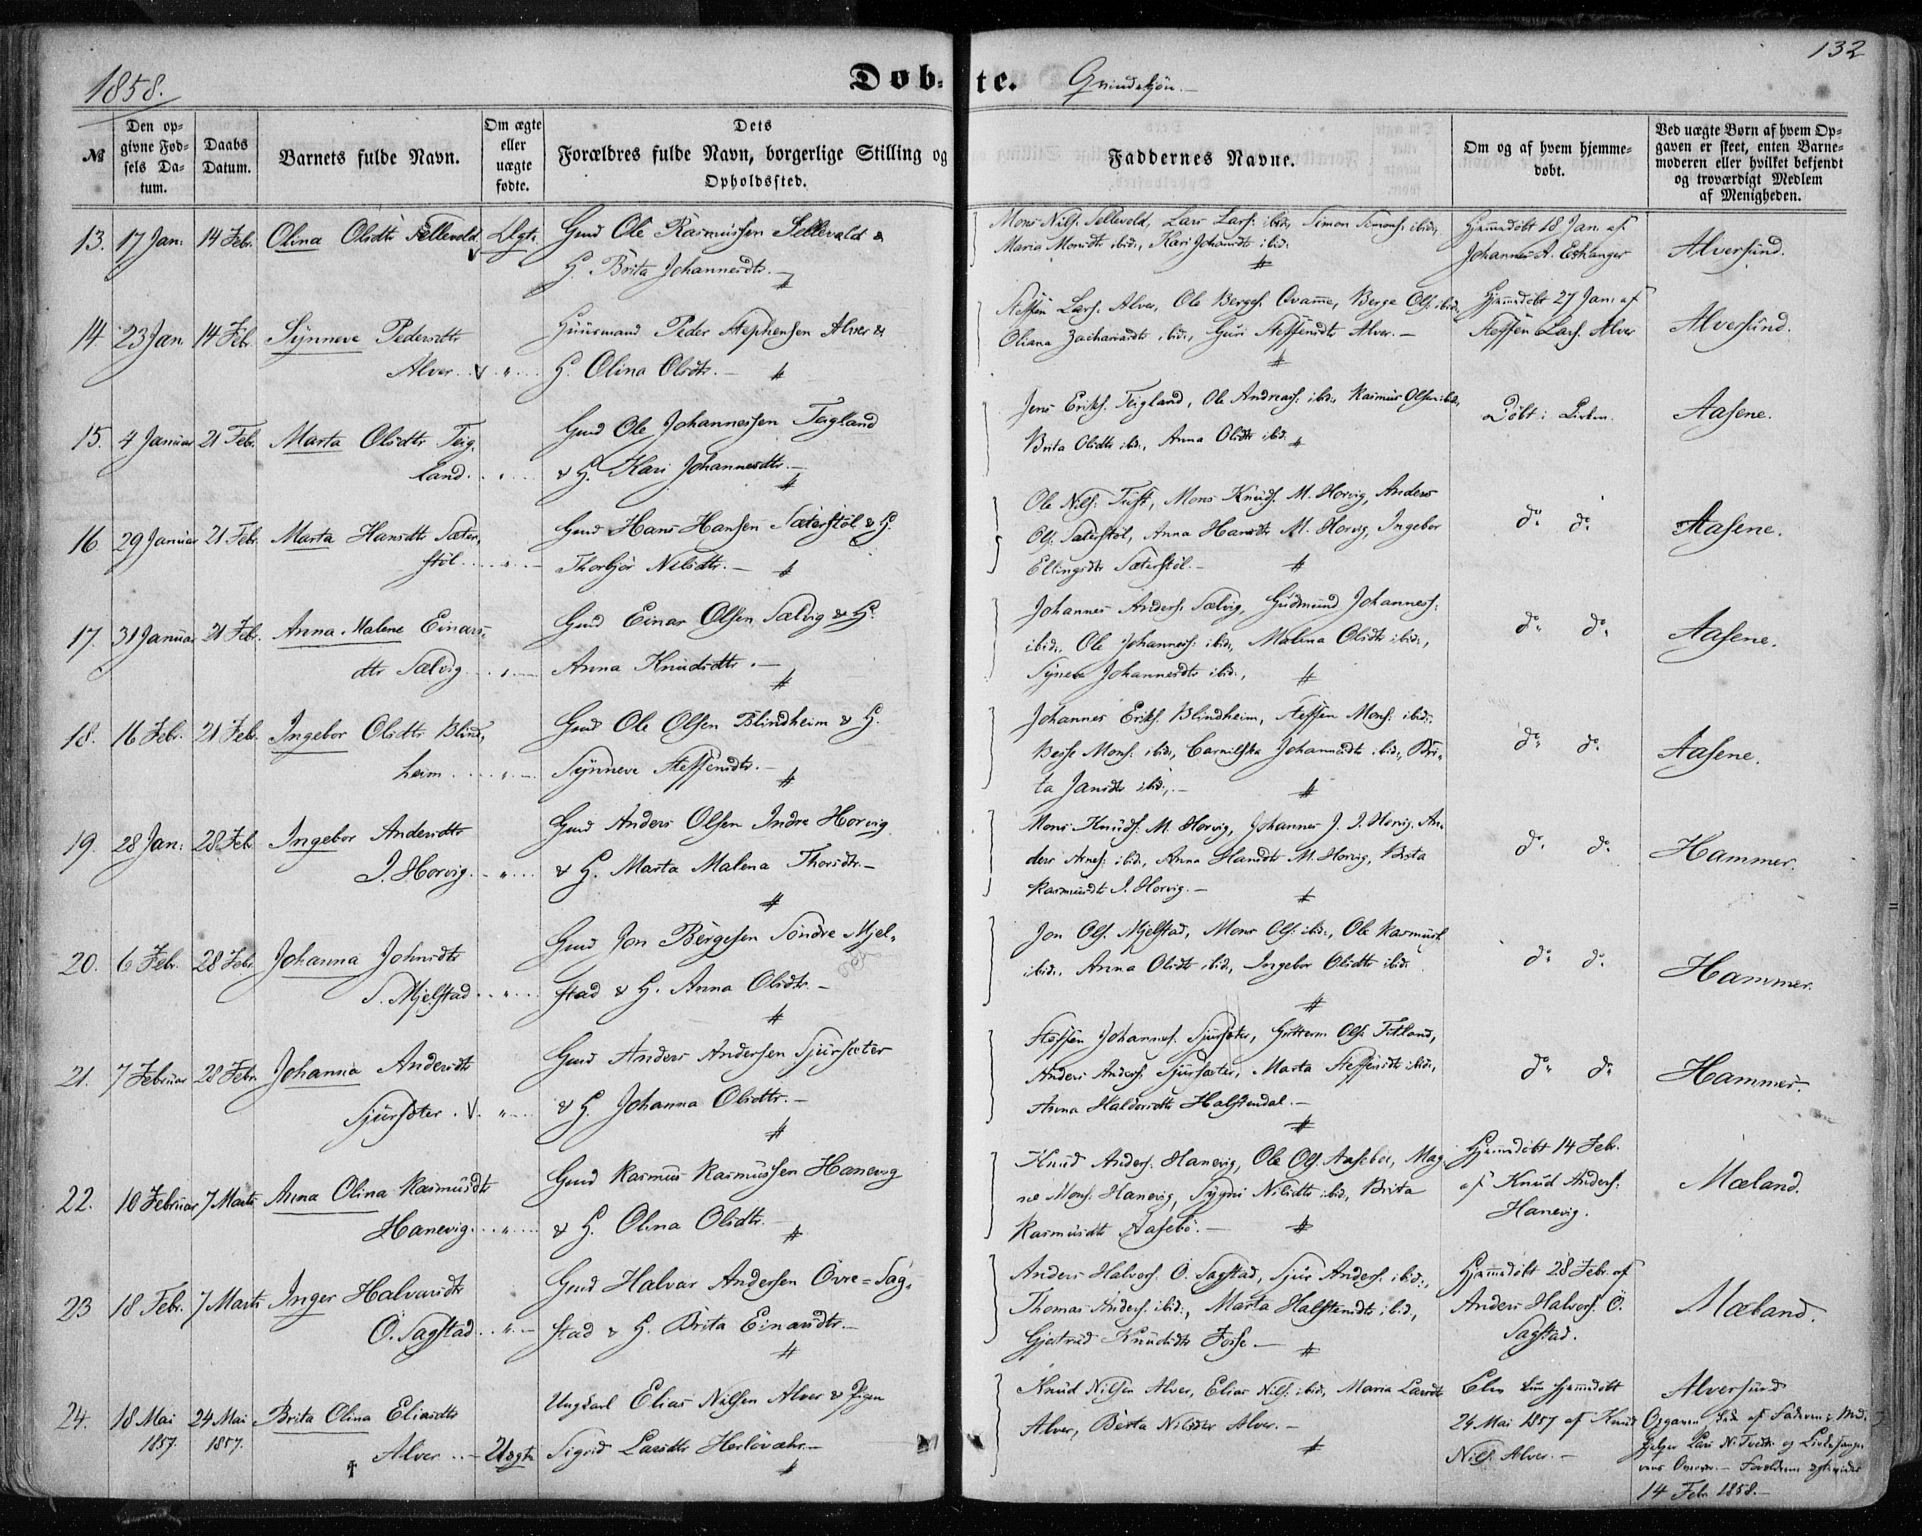 132
1858.
Døb-te. Qvindekjøn.
№
Den opgivne Fødsels Datum.
Daabs Datum.
Barnets fulde Navn.
Om ægte eller uægte fødte.
Dets Forældres fulde Navn, borgerlige Stilling og Opholdssted.
Faddernes Navne.
Om og af hvem hjemmedøbt.
Ved uægte Børn af hvem Opgaven er skeet, enten Barnemoderen eller hvilket bekjendt og troværdigt Medlem af Menigheden.
13. 17 Jan: 14 Febr. Olina Olsdtr Sellevold Ægte Gmd Ole Rasmussen Sellevold &
G. Brita Johannesdtr.
Mons Nils. Sellevold, Lars Lars. ibid, Simon Simons. ibid,
Maria Monsdtr ibid., Kari Johansdtr ibid.
Hjemmedøbt 18 Jan. af
Johannes A. Eshanger
Alversund.
14 23 Jan 14 Feb. Synneve Pedersdtr
Alver
Huusmand Peder Stephensen Alver &
G. Olina Olsdtr.
Steffen Lars. Alver, Ole Berges. Qvamme, Berge Ols. ibid,
Oliana Zachariasdtr ibid., Guri Steffensdtr Alver.
Hjemmedøbt 27 Jan. af
Steffen Lars. Alver
Alversund.
15. 4 Januar 21 Febr. Marta Olsdtr Teig,
land.
Gmd Ole Johannessen Teigland
& G. Kari Johannesdtr.
Jens Eriks. Teigland, Ole Andreass. ibid., Rasmus Olsen ibid,
Brita Olsdtr ibid., Anna Olsdtr ibid.
Døbt i Kirken.
Aasene.
16 29 Januar 21 Febr. Marta Hansdtr Sæter,
støl.
Gmd Hans Hansen Sæterstøl & G.
Thorbjør Nilsdtr.
Ole Nils. Tuft, Mons Knuds. M. Horvig, Anders
Ols. Sæterstøl, Anna Hansdtr M. Horvig, Ingebor
Ellingsdtr Sæterstøl.
do do
Aasene.
17. 31 Januar 21 Febr. Anna Malene Einars-
dtr Sælvig
Gmd Einar Olsen Sælvig & G.
Anna Knudsdtr.
Johannes Anders. Sælvig, Gudmund Johanness:
ibid., Ole Johanness. ibid., Malena Olsdtr ibid.,
Synneve Johannesdtr ibid.,
do do
Aasene.
18. 16 Feb. 21 Feb. Ingebor Olsdtr Blind,
heim
Gmd Ole Olsen Blindheim & G.
Synneve Steffensdtr.
Johannes Eriks. Blindheim, Steffen Mons. ibid.,
Mons. ibid., Johannesdtr ibid., Bri-
ta Jansdtr ibid.,
do do
Aasene.
19. 28 Jan: 28 Feb Ingebor Andersdtr
I. Horvig.
Gmd Anders Olsen Indre Horvig
& G. Marta Malena Thorsdtr.
Mons Knuds. M. Horvig, Johannes J. I. Horvig, An-
ders Arnes. ibid., Anna Hansdtr M. Horvig, Brita
Rasmusdtr I. Horvig.
do do
Hammer.
20. 6 Febr. 28 Febr. Johanna Johnsdtr
S. Mjelstad
Gmd Jon Bergesen Søndre Mjel,
stad & G. Anna Olsdtr.
Jon Ols. Mjelstad, Mons Ols. ibid., Ole Rasmuss.
ibid., Anna Olsdtr ibid., Ingebor Olsdtr ibid.
do do
Hammer.
21. 7 Februar 28 Febr. Johanna Andersdtr
Sjursæter
Gmd Anders Andersen Sjursæter
& G. Johanna Olsdtr.
Steffen Johannes. Sjursæter, Guttorm Ols. Titland,
Anders Anders. Sjursæter, Marta Steffensdtr ibid.,
Anna Haldorsdtr Halstendal.
do do
Hammer.
22. 10 Februar 7 Marts Anna Olina Rasmusdtr
Hanevig.
Gmd Rasmus Rasmussen Hanevig
& G. Olina Olsdtr.
Knud Anders. Hanevig, Ole Ols. Aasebø, Mag-
ne Mons. Hanevig, Sygni Nilsdtr ibid., Brita
Rasmusdtr Aasebø.
Hjemmedøbt 14 Febr.
af Knud Anders:
Hanevig.
Mæland.
23 18 Febr. 7 Marts Inger Halvarsdtr
Ø. Sagstad
Gmd Halvar Andersen Øvre=Sag,
stad & G. Brita Einarsdtr.
Anders Halvors. Ø. Sagstad, Sjur Anders. ibid.,
Thomas Anders. ibid., Marta Halstensdtr ibid.,
Gjertrud Knudsdtr Fosse
Hjemmedøbt 28 Febr. af
Anders Halvors. Ø.
Sagstad.
Mæland.
24. 18 Mai 24 Mai Brita Olina Eliasdtr
1857. 1857.
Alver Uægte
Ungkarl Elias Nilsen Alver & Pigen
Sigrid Larsdtr Herlövær
Knud Nilsen Alver, Elias Nils. ibid., Maria Larsdtr
Alver, Berta Nilsdtr Alver.
hjemmedøbt
24 Mai 1857 af Knud
Nils. Alver.
Alversund
Opgaven af Faderen i Med,
hjelper Lars N. Tvedt og
Forældrene ægteviedes
14 Febr. 1858.